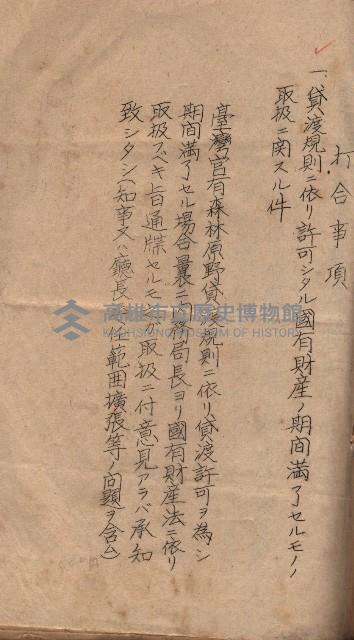 打合事項
一、貸渡規則ニ依リ許可シタル國有財産ノ期間満了セルモノノ
取扱ニ関スル件
臺灣官有森林原野貸渡規則ニ依リ貸渡許可ヲ為シ
期間満了セル場合曩ニ 務局長ヨリ國有財産法ニ依リ
取扱スベキ旨通牒セルモ 取扱ニ付意見アラバ承知
致シタシ(知事又ハ廳長 範囲擴張等ノ問題ヲ含ム)
高雄市立歷史博物館
KAOHSIUNG MUSEUM OF HISTORY